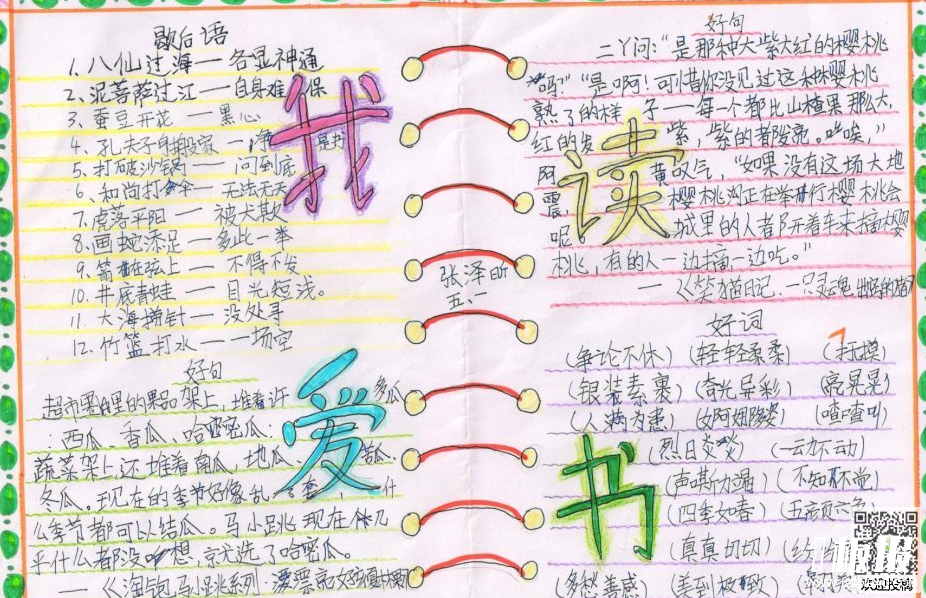 歇后语
1. 八仙过海 — 各显神通
2、泥菩萨过江 — 自身难保
3、蚕豆开花 — 黑心
4、孔夫子搬家 — 净
5、打破沙锅 — 问到底
6、和尚打伞 — 无法无天
7、虎落平阳 — 被犬欺
8、画蛇添足 — 多此一举
9、箭在弦上 — 不得不发
10、井底青蛙 — 目光短浅。
11、大海捞针 — 没处寻
12、竹篮打水 — 一场空
我
好句
超市里的果品架上，堆着许多瓜
：西瓜、香瓜、哈密瓜；
蔬菜架上还堆着南瓜、地瓜、苦瓜、
冬瓜。现在的季节好像乱，什
么季节都可以结瓜。马小跳现在几
乎什么都没想，就选了哈密瓜。
—《淘气包马小跳系列·漂亮女孩夏林果
爱
张泽昕
五、一
好句
二丫问：“是那种大紫大红的樱桃
吗？”“是啊！可惜你没见过这种樱桃
熟了的样子 — 每一个都比山楂果那么大，
红的发紫，紫的都发亮。”“唉，”
黄叹气，“如果没有这场大地
震，樱桃沟正在举行樱桃会
呢，城里的人都开着车来摘樱
桃，有的人一边摘一边吃。”
—《笑猫日记·一只
读
好词
(争论不休) (轻轻柔柔) (打摸)
(银装素裹) (奇光异彩) (亮晃晃)
(人满为患) (婀娜多姿) (喳喳叫)
(烈日炎炎) (一动不动)
(声嘶力竭) (不知不觉)
(四季如春) (五颜六色)
(真真切切)
(多愁善感) (美到极致)
书
欢迎投稿